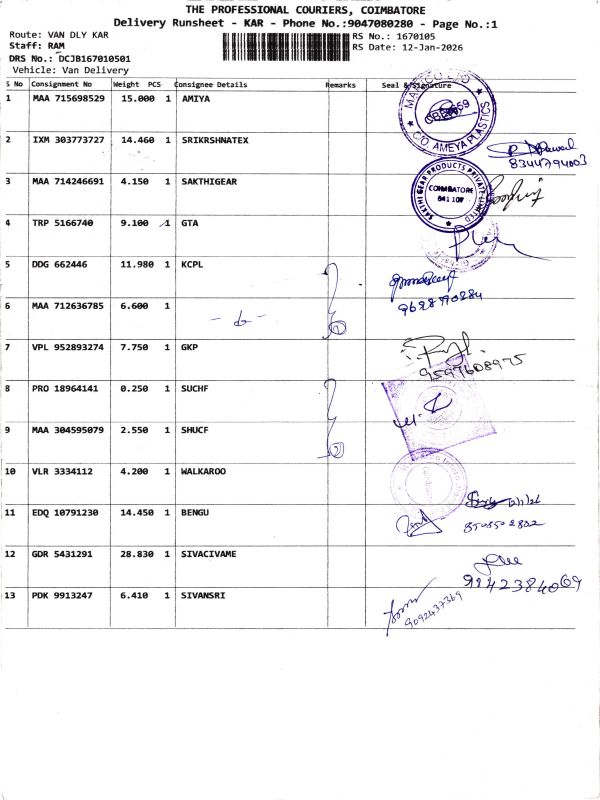 THE PROFESSIONAL COURIERS, COIMBATORE
Delivery Runsheet - KAR - Phone No.:9047080280 - Page No.:1
Route: VAN DLY KAR
RS No.: 1670105
Staff: RAM
RS Date: 12-Jan-2026
DRS No.: DCJB167010501
Vehicle: Van Delivery
S No Consignment No Weight PCS Consignee Details Remarks Seal & Signature
1 MAA 715698529 15.000 1 AMIYA
C/O. AMEYA PLASTICS
2 IXM 303773727 14.460 1 SRIKRSHNATEX
8344794003
3 MAA 714246691 4.150 1 SAKTHIGEAR
SAKTHI GEAR PRODUCTS PRIVATE LIMITED
COIMBATORE
641 107
4 TRP 5166740 9.100 1 GTA
5 DDG 662446 11.980 1 KCPL
9628790284
6 MAA 712636785 6.600 1
7 VPL 952893274 7.750 1 GKP
9597608975
8 PRO 18964141 0.250 1 SUCHF
9 MAA 304595079 2.550 1 SHUCF
10 VLR 3334112 4.200 1 WALKAROO
11 EDQ 10791230 14.450 1 BENGU
12 GDR 5431291 28.830 1 SIVACIVAME
9842384069
13 PDK 9913247 6.410 1 SIVANSRI
9092437369